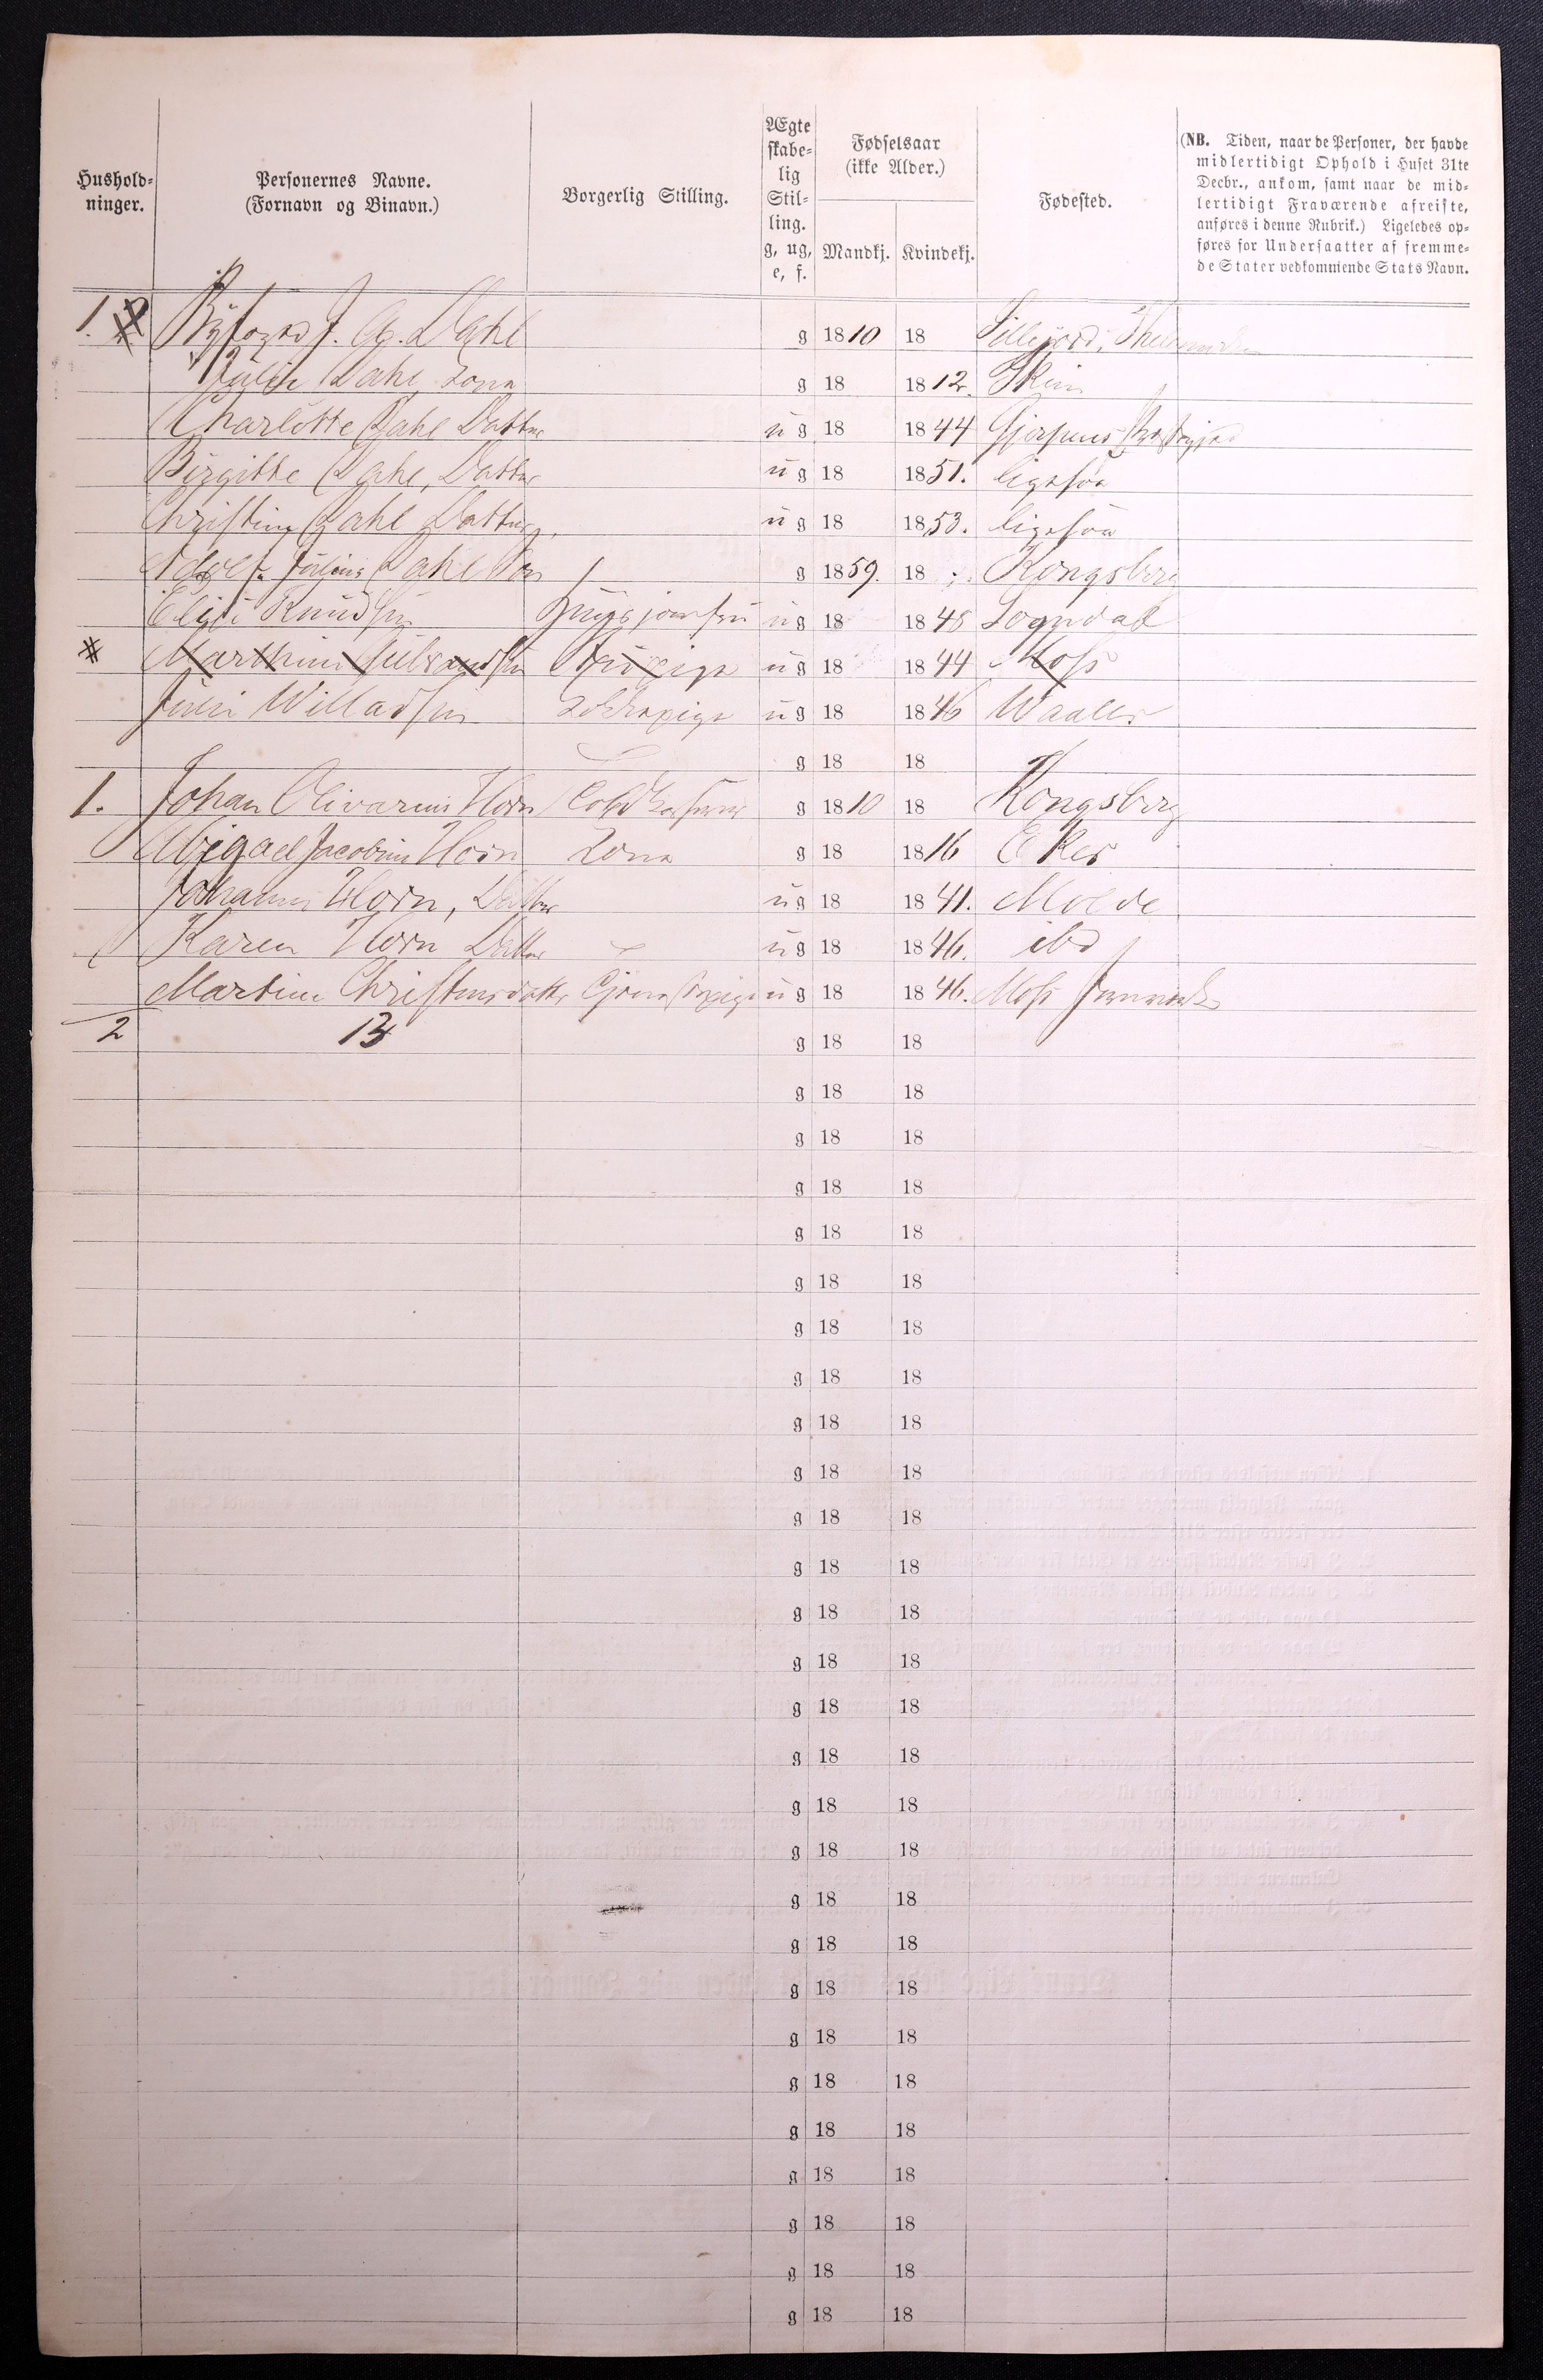 Hushold-
ninger.
Personernes Navne.
(Fornavn og Binavn.)
Borgerlig Stilling.
Ægte
skabe-
lig
Stil-
ling.
g, ug,
e, f.
Fødselsaar
(ikke Alder.)
Mandkj. Kvindekj.
Fødested.
(NB. Tiden, naar de Personer, der havde
midlertidigt Ophold i Huset 31te
Decbr., ankom, samt naar de mid-
lertidigt Fraværende afreiste,
anføres i denne Rubrik.) Ligeledes op-
føres for Undersaatter af fremme-
de Stater vedkommende Stats Navn.
1. Byfogd J. A. Dahl g 1810 18 Silljord, Thelemarken
Julie Dahl, Kona g 18 1812. Skien
Charlotte Dahl Datter ug 18 1844 Gjerpens
Birgitte Dahl, Datter ug 18 1851. ligesaa
Christine Dahl Datter, ug 18 1853. ligesaa
Adolf Julius Dahl Søn g 1859. 18 Kongsberg
Elise Knudsen Huusjomfru ug 18 1848 Sogndal
Marthine Gulbrandsen Stuepige ug 18 1844 Moss
Julie Willadsen Kokkepige ug 18 1846 Waaler
g 18 18
1. Johan Olivarius Horn g 1810 18 Kongsberg
Abigael Jacobine Horn Kona g 18 1816 Eker
Johanne Horn, Datter ug 18 1841. Molde
Karen Horn Datter ug 18 1846. ibd
Martine Christensdatter Tjenestepige ug 18 1846. Moss Jernverk
2 13 g 18 18
g 18 18
g 18 18
g 18 18
g 18 18
g 18 18
g 18 18
g 18 18
g 18 18
g 18 18
g 18 18
g 18 18
g 18 18
g 18 18
g 18 18
g 18 18
g 18 18
g 18 18
g 18 18
g 18 18
g 18 18
g 18 18
g 18 18
g 18 18
g 18 18
g 18 18
g 18 18
g 18 18